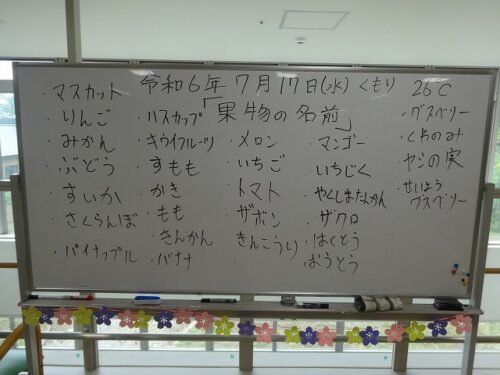 令和6年 7月17日(水) くもり 26℃
「果物の名前」
・マスカット
・りんご
・みかん
・ぶどう
・すいか
・さくらんぼ
・パイナップル
・ハスカップ
・キウイフルーツ
・すもも
・かき
・もも
・きんかん
・バナナ
・メロン
・いちご
・トマト
・ザボン
・きんこうり
・マンゴー
・いちじく
・やくしまたんかん
・ザクロ
・はくとう
・おうとう
・グズベリー
・くわのみ
・ヤシの実
・せいよう
グズベリー